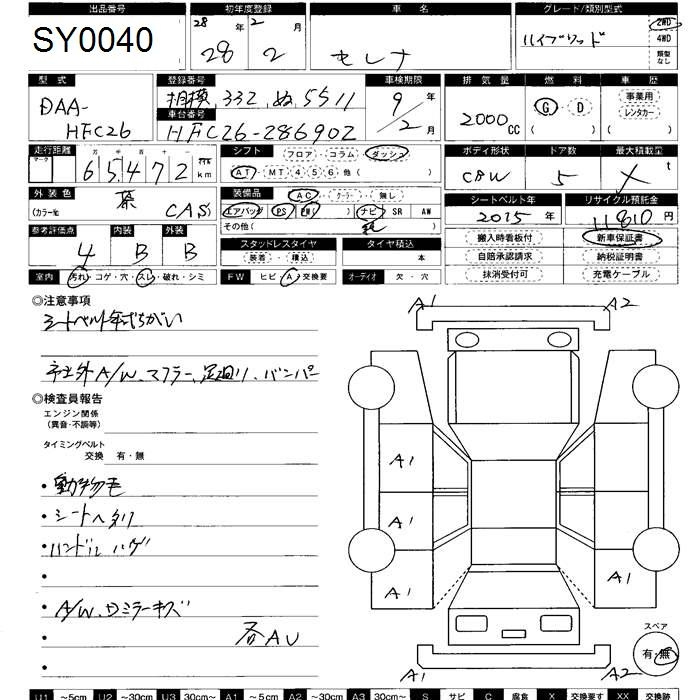 出品番号 初年度登録 車名 グレード/類別型式
SY0040 28年 2月 28 2 セレナ ハイブリッド 2WD 4WD 類型なし
型式 登録番号 車検期限 排気量 燃料 車歴
DAA-HFC26 相模 332 ぬ 5511 9年 2月 2000cc G・D ( ) 事業用 レンタカー ( )
車台番号
HFC26-286902
走行距離 シフト ボディ形状 ドア数 最大積載量
マーク 十万 万 千 百 十 一 フロア・コラム・ダッシュ
65472 km AT・MT 4 5 6 他( ) CBW 5 X t
外装色 装備品 シートベルト年 リサイクル預託金
(カラー№ ) 茶 CAS AC・クーラー・無し 2015年 11810円
エアバッグ PS PW( ) ナビ SR AW
参考評価点 内装 外装 その他( )
4 B B スタッドレスタイヤ タイヤ積込 搬入時看板付 新車保証書
装着・積込 本 自賠承認請求 納税証明書
室内 汚れ・コゲ・穴・スレ・破れ・シミ FW ヒビ・A・交換要 オーディオ 欠・穴 抹消受付可 充電ケーブル
◎注意事項
シートベルト年式ちがい
市外A/W、マフラー、足廻り、バンパー
◎検査員報告
エンジン関係
(異音・不調等)
タイミングベルト
交換 有・無
・動物毛
・シートヘタリ
・ハンドルハゲ
・
・A/W、Dミラーキズ
・ 各AU
・
A1 A2
A1
A1
A1 A1
A1 A2
スペア
有・無
U1 ～5cm U2 ～30cm U3 30cm～ A1 ～5cm A2 ～30cm A3 30cm～ S サビ C 腐食 X 交換要す XX 交換跡